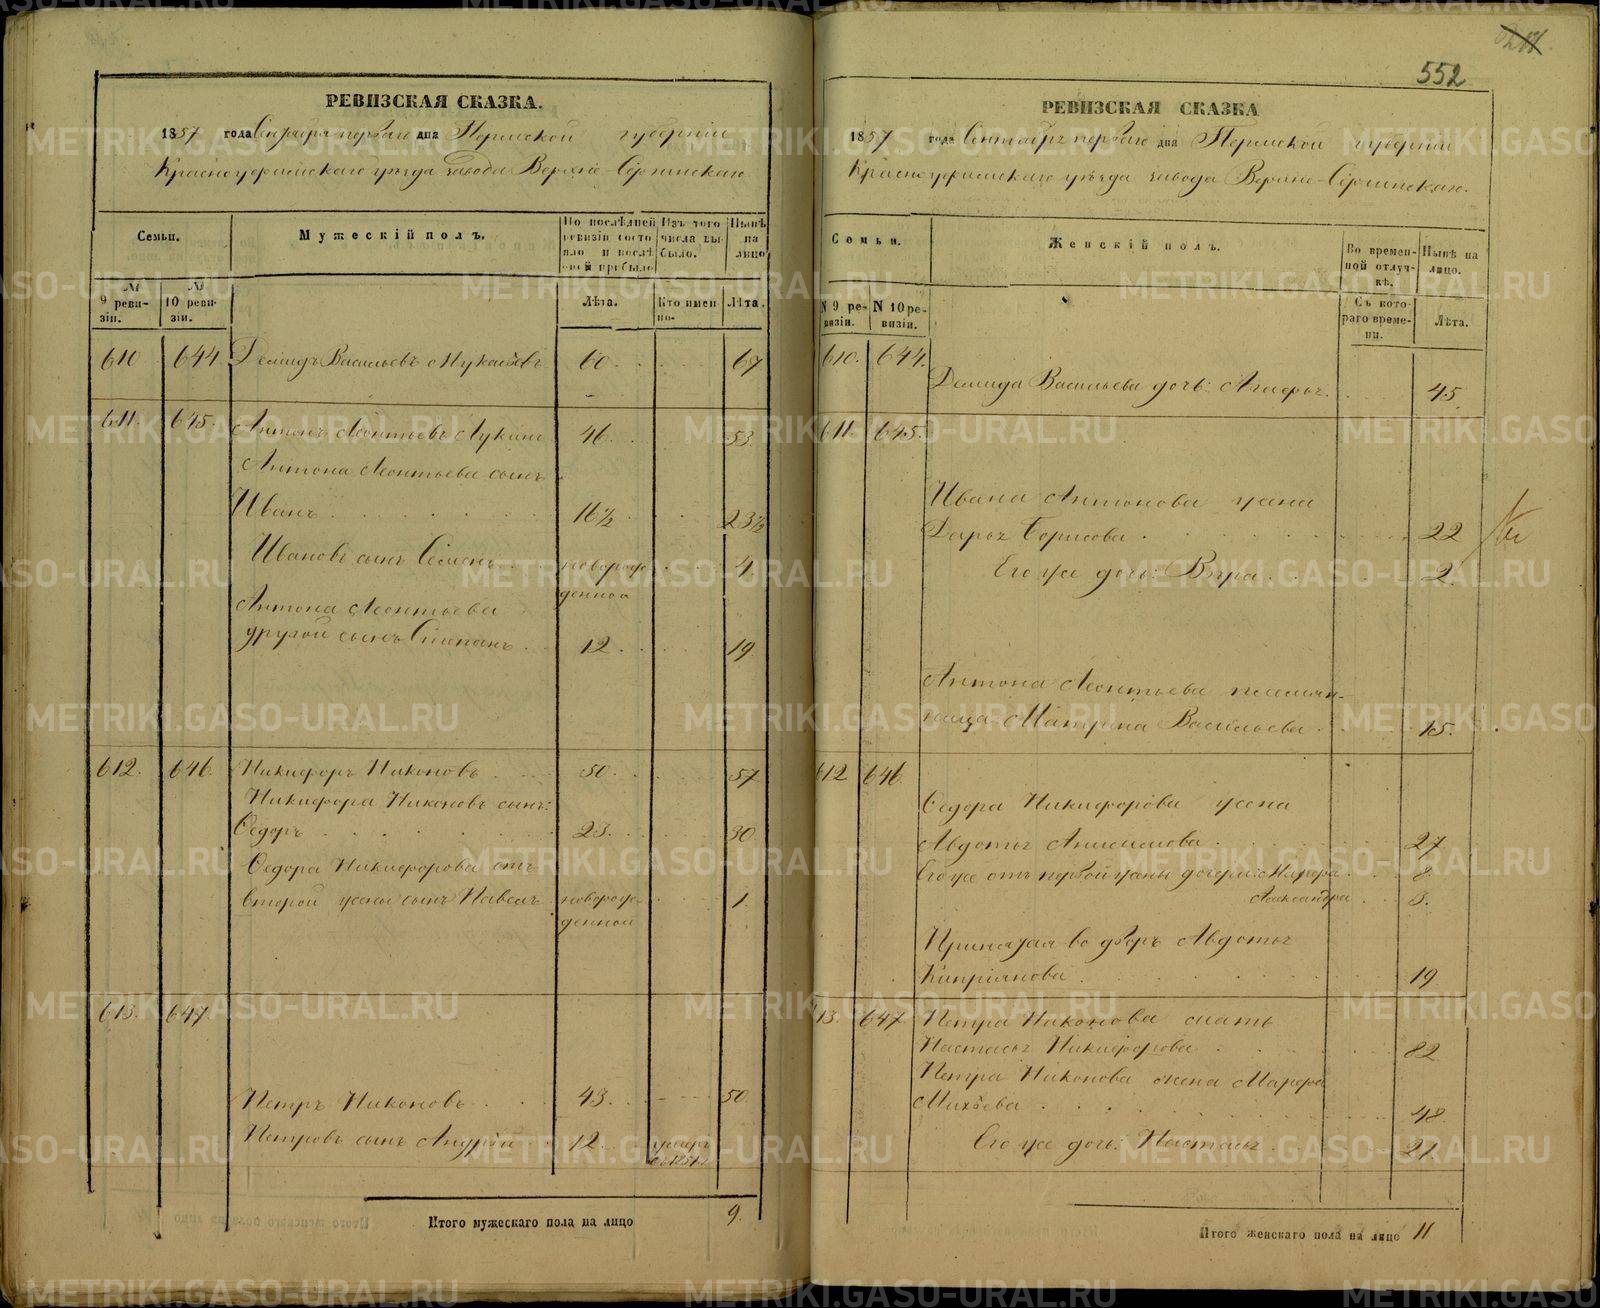 РЕВИЗСКАЯ СКАЗКА.
1857 года Сентября первого дня Пермской губернiи
Красноуфимскаго уѣзда завода Верхне-Сергинскаго
Семьи.
Мужескiй полъ.
По послѣдней ревизiи состояло и послѣ оной прибыло
Изъ того числа выбыло.
Нынѣ на лицо
№ 9 ревизiи.
№ 10 ревизiи.
Лѣта.
Кто именно.
Лѣта.
610 644 Демидъ Васильевъ 60 67
611. 645. Антонъ Леонтьевъ Лукинъ 46 53.
Антона Леонтьева сынъ
Иванъ 16½ 23½
Ивановъ сынъ Семенъ новорож- 4
денной
Антона Леонтьева
другой сынъ Степанъ 12 19
612. 646. Никифоръ Никоновъ 50. 57
Никифора Никоновъ сынъ:
Ѳедоръ 23. 30
Ѳедора Никифорова отъ
второй жены сынъ Павелъ новорож- 1
денной
613. 647.
Петръ Никоновъ 43. 50
Петровъ сынъ Андрей 12. умеръ
въ 1851
Итого мужескаго пола на лицо 9.
552
РЕВИЗСКАЯ СКАЗКА
1857 года Сентября первого дня Пермской губернiи
Красноуфимскаго уѣзда завода Верхне-Сергинскаго.
Семьи.
Женскiй полъ.
Во временной отлучкѣ.
Нынѣ на лицо.
N 9 ревизiи.
N 10 ревизiи.
Съ котораго времени.
Лѣта.
610. 644.
Демида Васильева дочь: 45.
611. 645.
Ивана Антонова жена
Дарья Борисова 22
Его же дочь: Вѣра 2.
Антона Леонтьева племян-
ница Матрена Васильева 15.
612 646
Ѳедора Никифорова жена
Авдотья 27
Его же отъ первой жены дочери: Марфа 8
Александра 3.
во дворъ Авдотья
Кипрiянова 19
13. 647 Петра Никонова мать
Настасья Никифорова 82
Петра Никонова жена Марфа
Михѣева 48
Его же дочь: Настасья 21
Итого женскаго пола на лицо 11
METRIKI.GASO-URAL.RU